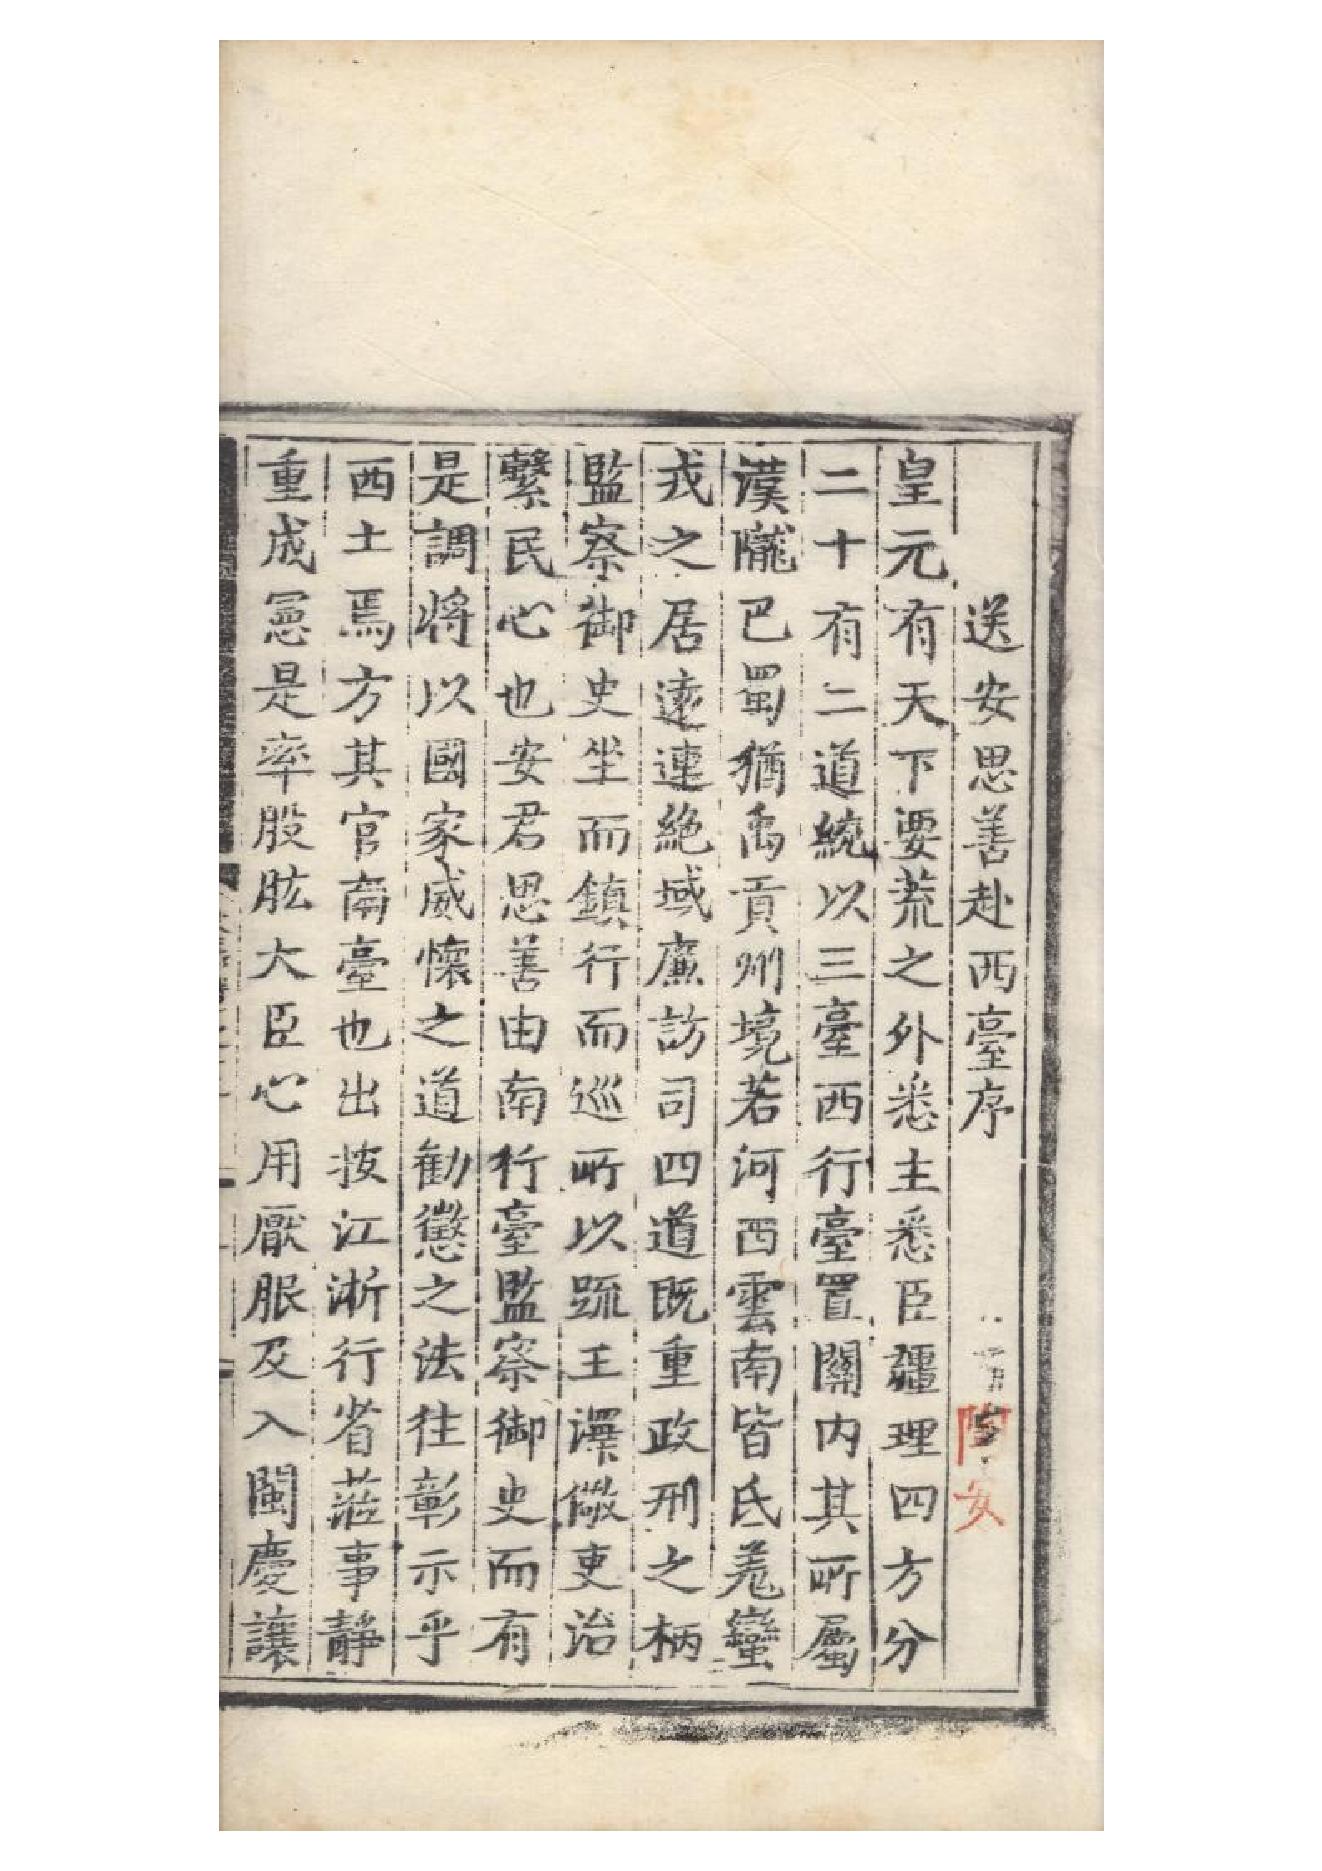 送安思善赴西臺序
皇元有天下要荒之外悉主悉臣疆理四方分
二十有二道統以三臺西行臺置關内其所屬
漢隴巴蜀猶禹貢州境若河西雲南皆氐羗蠻
戎之居遼連絶域廉訪司四道既重政刑之柄
監察御史坐而鎮行而巡所以䟽王澤儆吏治
繫民心也安君思善由南行臺監察御史而有
是調將以國家威懷之道勸懲之法往彰示乎
西土焉方其官南臺也出按江淅行省蒞事靜
重成憲是率股肱大臣心用厭服及入閩慶讓